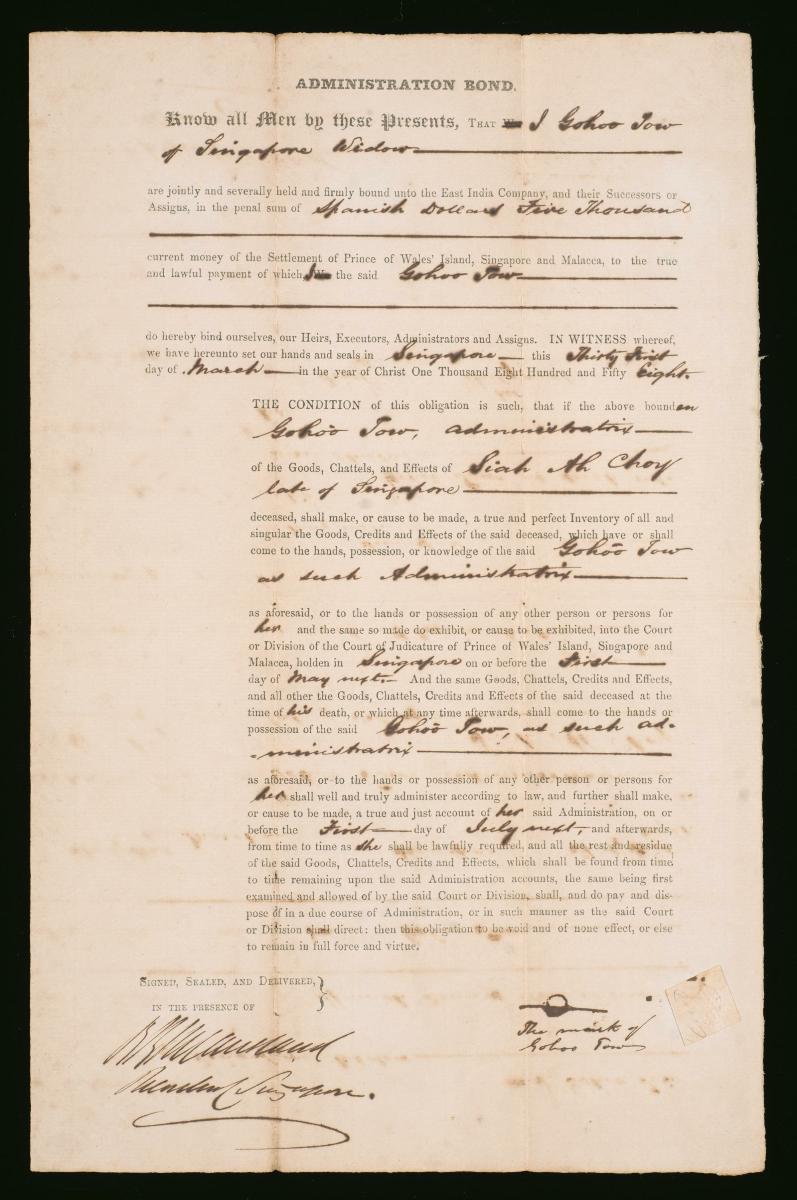 ADMINISTRATION BOND.
Know all Men by these Presents, THAT I Gohoo Tow
of Singapore Widow
are jointly and severally held and firmly bound unto the East India Company, and their Successors or
Assigns, in the penal sum of Spanish Dollars Five Thousand
current money of the Settlement of Prince of Wales' Island, Singapore and Malacca, to the true
and lawful payment of which I the said Gohoo Tow
do hereby bind ourselves, our Heirs, Executors, Administrators and Assigns. IN WITNESS whereof,
we have hereunto set our hands and seals in Singapore this Thirty First
day of March in the year of Christ One Thousand Eight Hundred and Fifty Eight.
THE CONDITION of this obligation is such, that if the above bounden
Gohoo Tow, administratrix
of the Goods, Chattels, and Effects of Siah Ah Choy
late of Singapore
deceased, shall make, or cause to be made, a true and perfect Inventory of all and
singular the Goods, Credits and Effects of the said deceased, which have or shall
come to the hands, possession, or knowledge of the said Gohoo Tow
as such Administratrix
as aforesaid, or to the hands or possession of any other person or persons for
her and the same so made do exhibit, or cause to be exhibited, into the Court
or Division of the Court of Judicature of Prince of Wales' Island, Singapore and
Malacca, holden in Singapore on or before the First
day of May next. And the same Goods, Chattels, Credits and Effects,
and all other the Goods, Chattels, Credits and Effects of the said deceased at the
time of his death, or which at any time afterwards, shall come to the hands or
possession of the said Gohoo Tow, as such ad-
-ministratrix
as aforesaid, or to the hands or possession of any other person or persons for
her shall well and truly administer according to law, and further shall make,
or cause to be made, a true and just account of her said Administration, on or
before the First day of July next, and afterwards,
from time to time as she shall be lawfully required, and all the rest and residue
of the said Goods, Chattels, Credits and Effects, which shall be found from time
to time remaining upon the said Administration accounts, the same being first
examined and allowed of by the said Court or Division, shall, and do pay and dis-
pose of in a due course of Administration, or in such manner as the said Court
or Division shall direct: then this obligation to be void and of none effect, or else
to remain in full force and virtue.
SIGNED, SEALED, AND DELIVERED,
IN THE PRESENCE OF
The mark of
Gohoo Tow
Singapore.